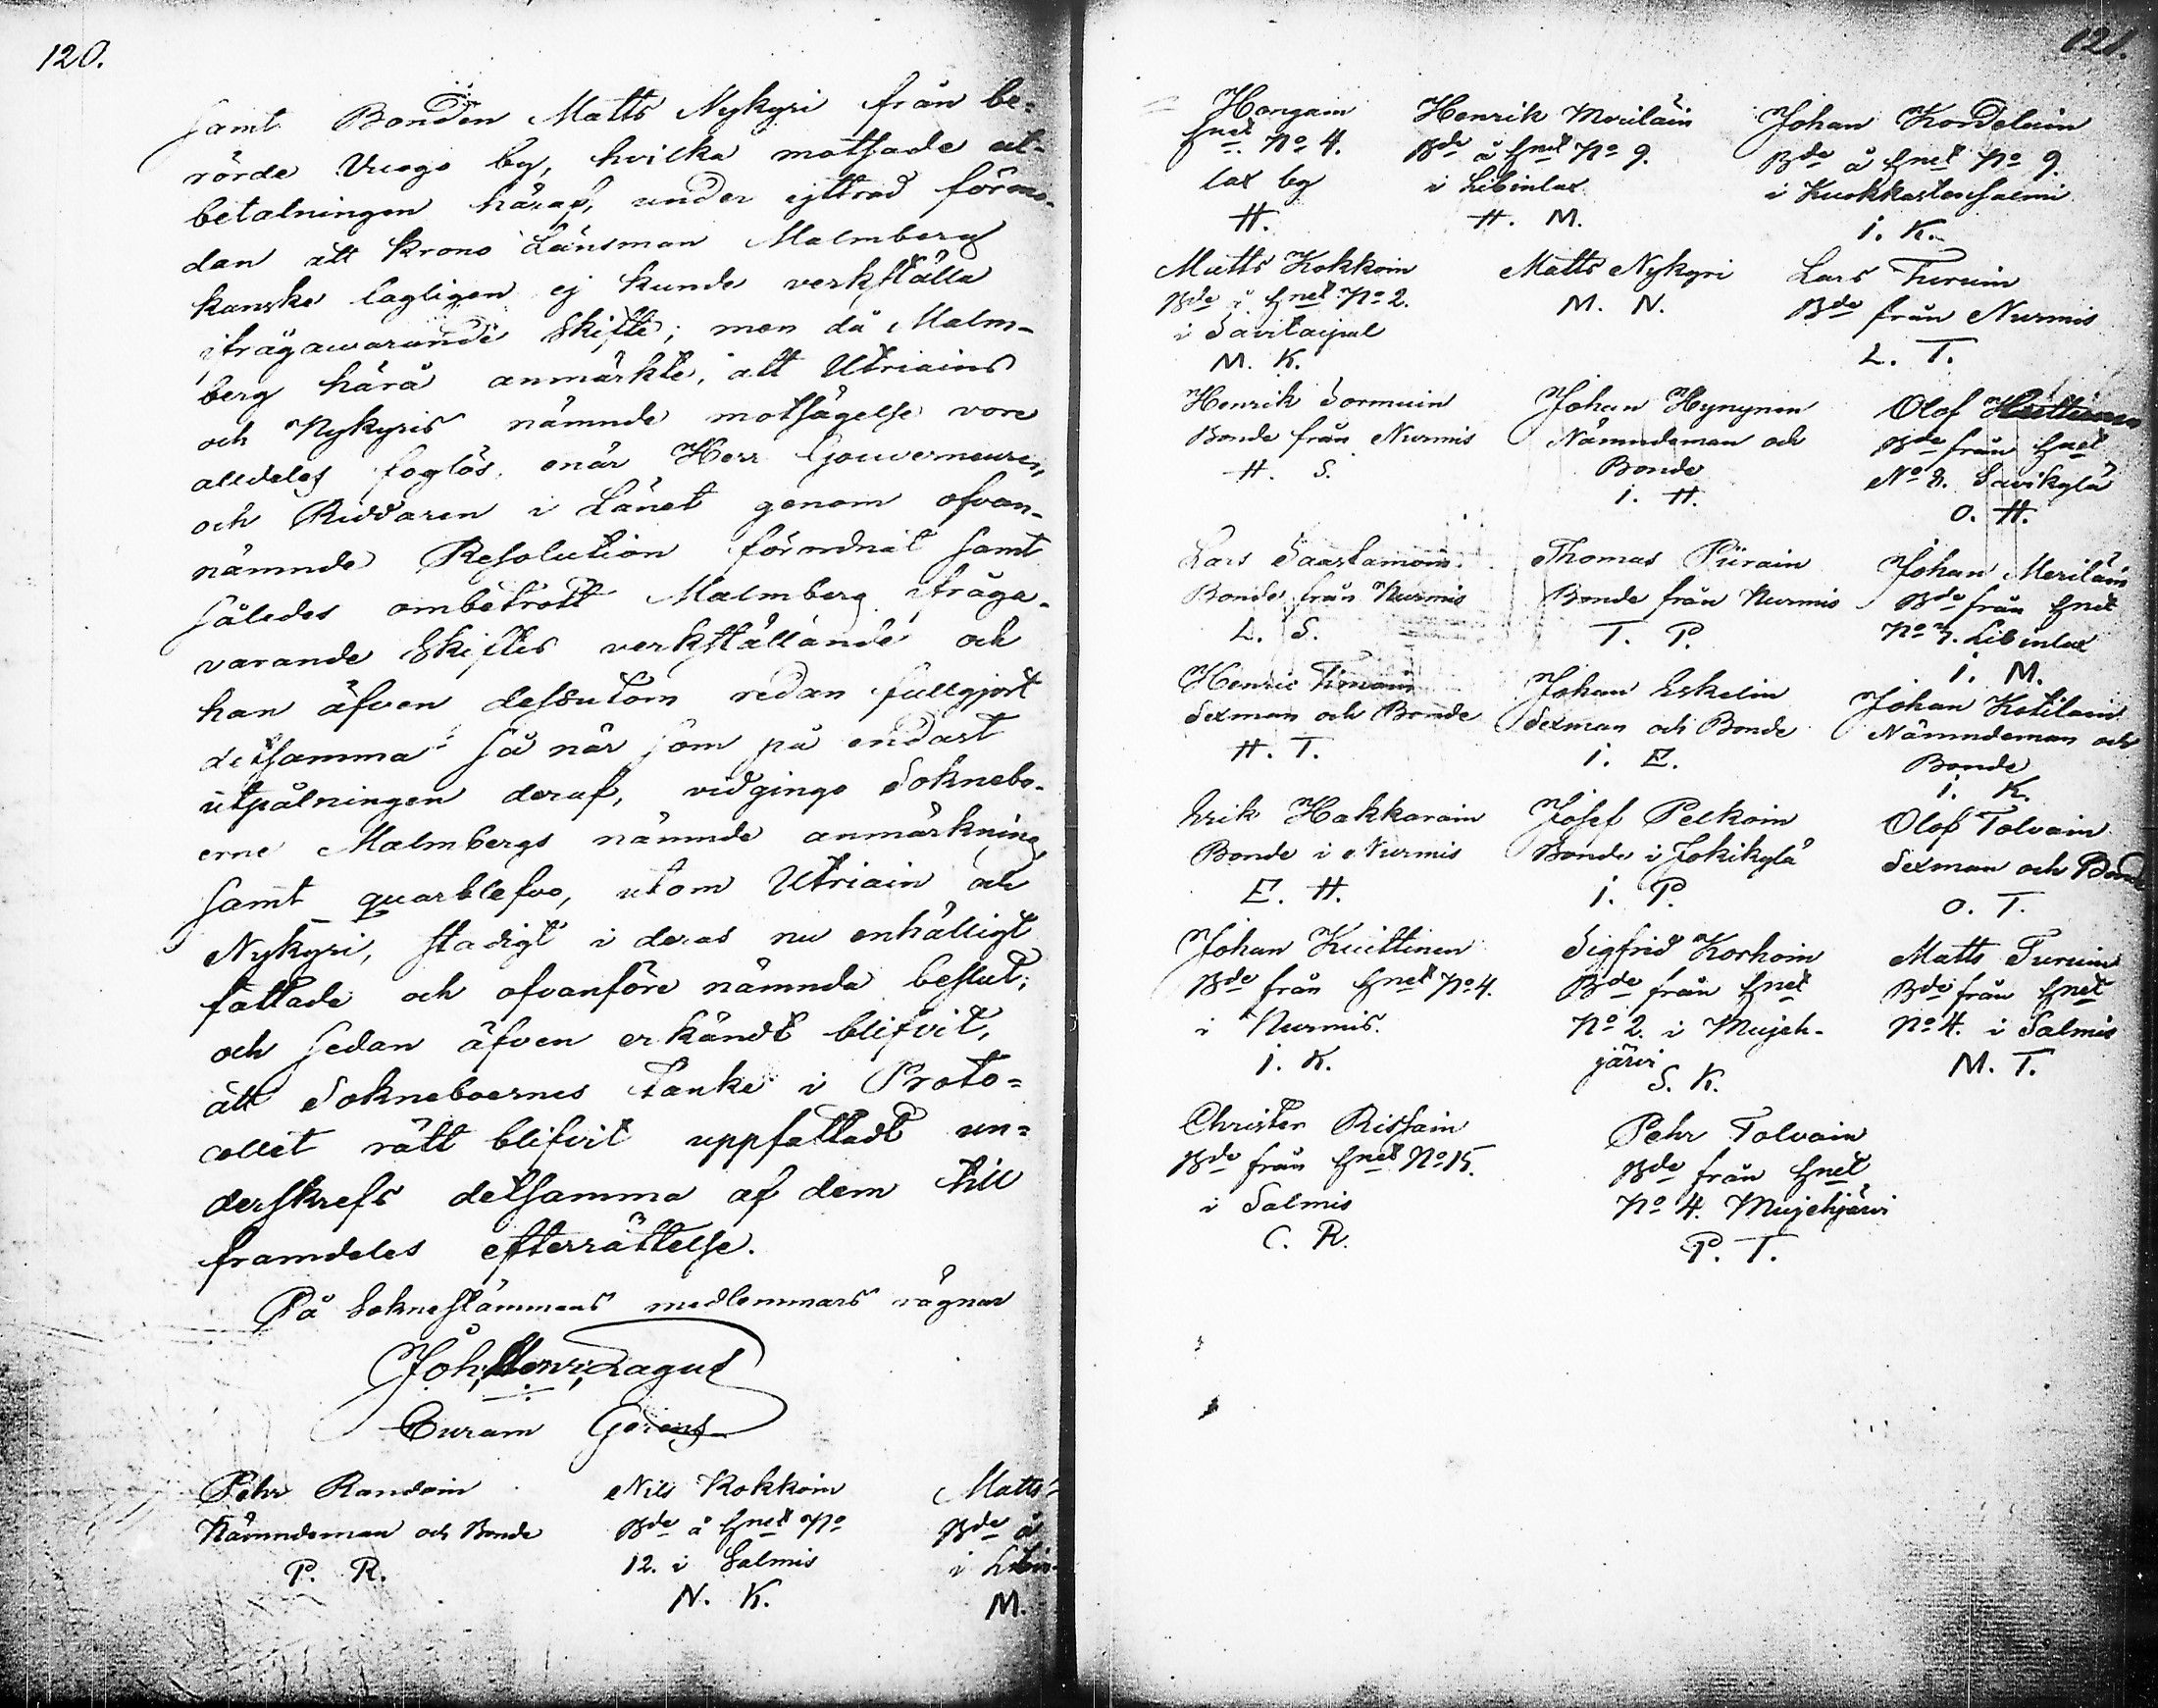 120.
samt Bonden Matts Nykyri från be-
rörde Vuogo by, hvilka motsade ut-
betalningen häraf, under yttrad förmo-
dan att Krono Länsman Malmberg
kanske lagligen ej kunde verkställa
ifrågawarande Skifte; men då Malm-
berg härå anmärkte, att Utriains
och Nykyris nämnde motsägelse vore
alldeles foglös, enär Herr Gouverneuren
och Riddaren i Länet genom ofvan-
nämnde Resolution förordnat samt
således ombetrott Malmberg ifråga-
varande Skiftes verkställande och
han äfven dessutom redan fullgjort
detsamma så när som på endast
utpålningen deraf, vidgingo Sokneboe-
erne Malmbergs nämnde anmärkning
samt quarblefvo, utom Utriain och
Nykyri, stadigt i deras nu enhälligt
fattade och ofvanföre nämnda beslut;
och sedan äfven erkändt blifvit,
att Sokneboernes tanke i Proto-
collet rätt blifvit uppfattadt un-
derskrefs detsamma af dem till
framdeles efterrättelse.
På Soknestämmans medlemmars vägnar
Joh. Henr. Lagus
Curam Gerens
Pehr Randain
Nämndeman och Bonde
P. R.
Nils Kokkoin
Bde å Hnet No
12. i Salmis
N. K.
Matts
Bde å
i Libin-
M.
121.
Hongain
Hnet. No 4.
lax by
H.
Henrik Meriläin
Bde å Hnet No 9.
i Libinlax
H. M.
Johan Kordelain
Bde å Hnet No 9.
i Kuokkastensalmi
I. K.
Matts Kokkoin
Bde å Hnet No 2.
i Savitaipal
M. K.
Matts Nykyri
M. N.
Lars Turuin
Bde från Nurmis
L. T.
Henrik Sormuin
Bonde från Nurmis
H. S.
Johan Hynynen
Nämndeman och
Bonde
I. H.
Olof
Bde från Hnet
No 8. Savikylä
O. H.
Lars Saastamoin
Bonde från Nurmis
L. S.
Thomas Piirain
Bonde från Nurmis
T. P.
Johan Meriläin
Bde från Hnet
No 7. Libinlax
I. M.
Henric Timoin
Sexman och Bonde
H. T.
Johan Eskelin
Sexman och Bonde
I. E.
Johan Kotilain
Nämndeman och
Bonde
I. K.
Erik Hakkarain
Bonde i Nurmis
E. H.
Josef Pelkoin
Bonde i Jokikylä
I. P.
Olof Tolvain
Sexman och Bonde
O. T.
Johan Kuittinen
Bde från Hnet No 4.
i Nurmis.
I. K.
Sigfrid Korhoin
Bde från Hnet
No 2. i Mujeh-
järvi
S. K.
Matts Turuin
Bde från Hnet
No 4. i Salmis
M. T.
Christer Rissain
Bde från Hnet No 15.
i Salmis
C. R.
Pehr Tolvain
Bde från Hnet
No 4. Mujehjärvi
P. T.